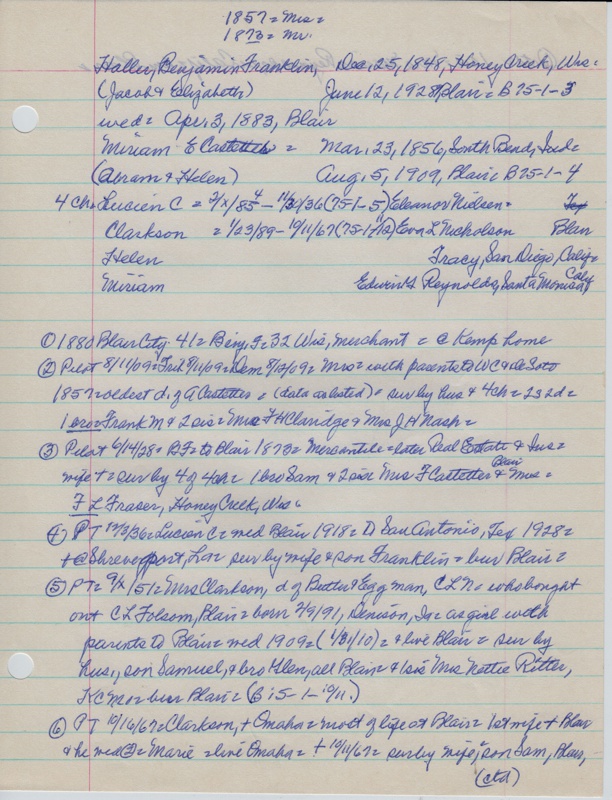 1857 = Mrs =
1873 = Mr.
Haller, Benjamin Franklin, Dec. 25, 1848, Honey Creek, Wis =
(Jacob & Elizabeth) June 12, 1928, Blair = B 75-1-3
wed = Apr. 3, 1883, Blair
Miriam E Castetter = Mar. 23, 1856, South Bend, Ind =
(Abram & Helen) Aug. 5, 1909, Blair = B 75-1-4
4 ch = Lucien C = 9/x/85 - 11/30/36 (75-1-5) Eleanor Nielsen = Tex
Clarkson = 1/23/89 - 10/11/67 (75-1-12) Eva L Nicholson Blair
Helen Tracy, San Diego, Calif =
Miriam Edwin G. Reynolds, Santa Monica, Calif
① 1880 Blair City 41 = Benj. F = 32 Wis, merchant = @ Kemp home
② Pilot 8/11/09 = Trib 8/11/09 = Dem 8/12/09 = Mrs = with parents to WC & de Soto
1857 = oldest d. of A Castetter = (data as listed) = sur by hus & 4 ch = 2s 2d =
1 bro = Frank M & 2 sis = Mrs F H Claridge & Mrs J H Nash =
③ Pilot 6/14/28 = BF = to Blair 1873 = Mercantile = later Real Estate & Ins =
wife + = sur by 4 of 4 ch = 1 bro Sam & 2 sis Mrs F Castetter Blair & Mrs =
F L Fraser, Honey Creek, Wis =
④ PT 12/3/36 = Lucien C = wed Blair 1918 = to San Antonio, Tex 1928 =
+ @ Shreveport, La = sur by wife & son Franklin = bur Blair =
⑤ PT = 9/x/51 = Mrs Clarkson, d of Butter & Egg man, C L N = who bought
out C L Folsom, Blair = born 2/9/91, Denison, Ia = as girl with
parents to Blair = wed 1909 = (1/31/10) = & live Blair = sur by
hus., son Samuel, & bro Glen, all Blair & 1 sis Mrs Nettie Ritter,
K C Mo = bur Blair = (B 75-1-10/11.)
⑥ PT 10/16/67 = Clarkson, + Omaha = most of life at Blair = 1st wife + Blair
& he wed ② = Marie = live Omaha = + 10/11/67 = sur by wife, son Sam, Blair,
(ctd)